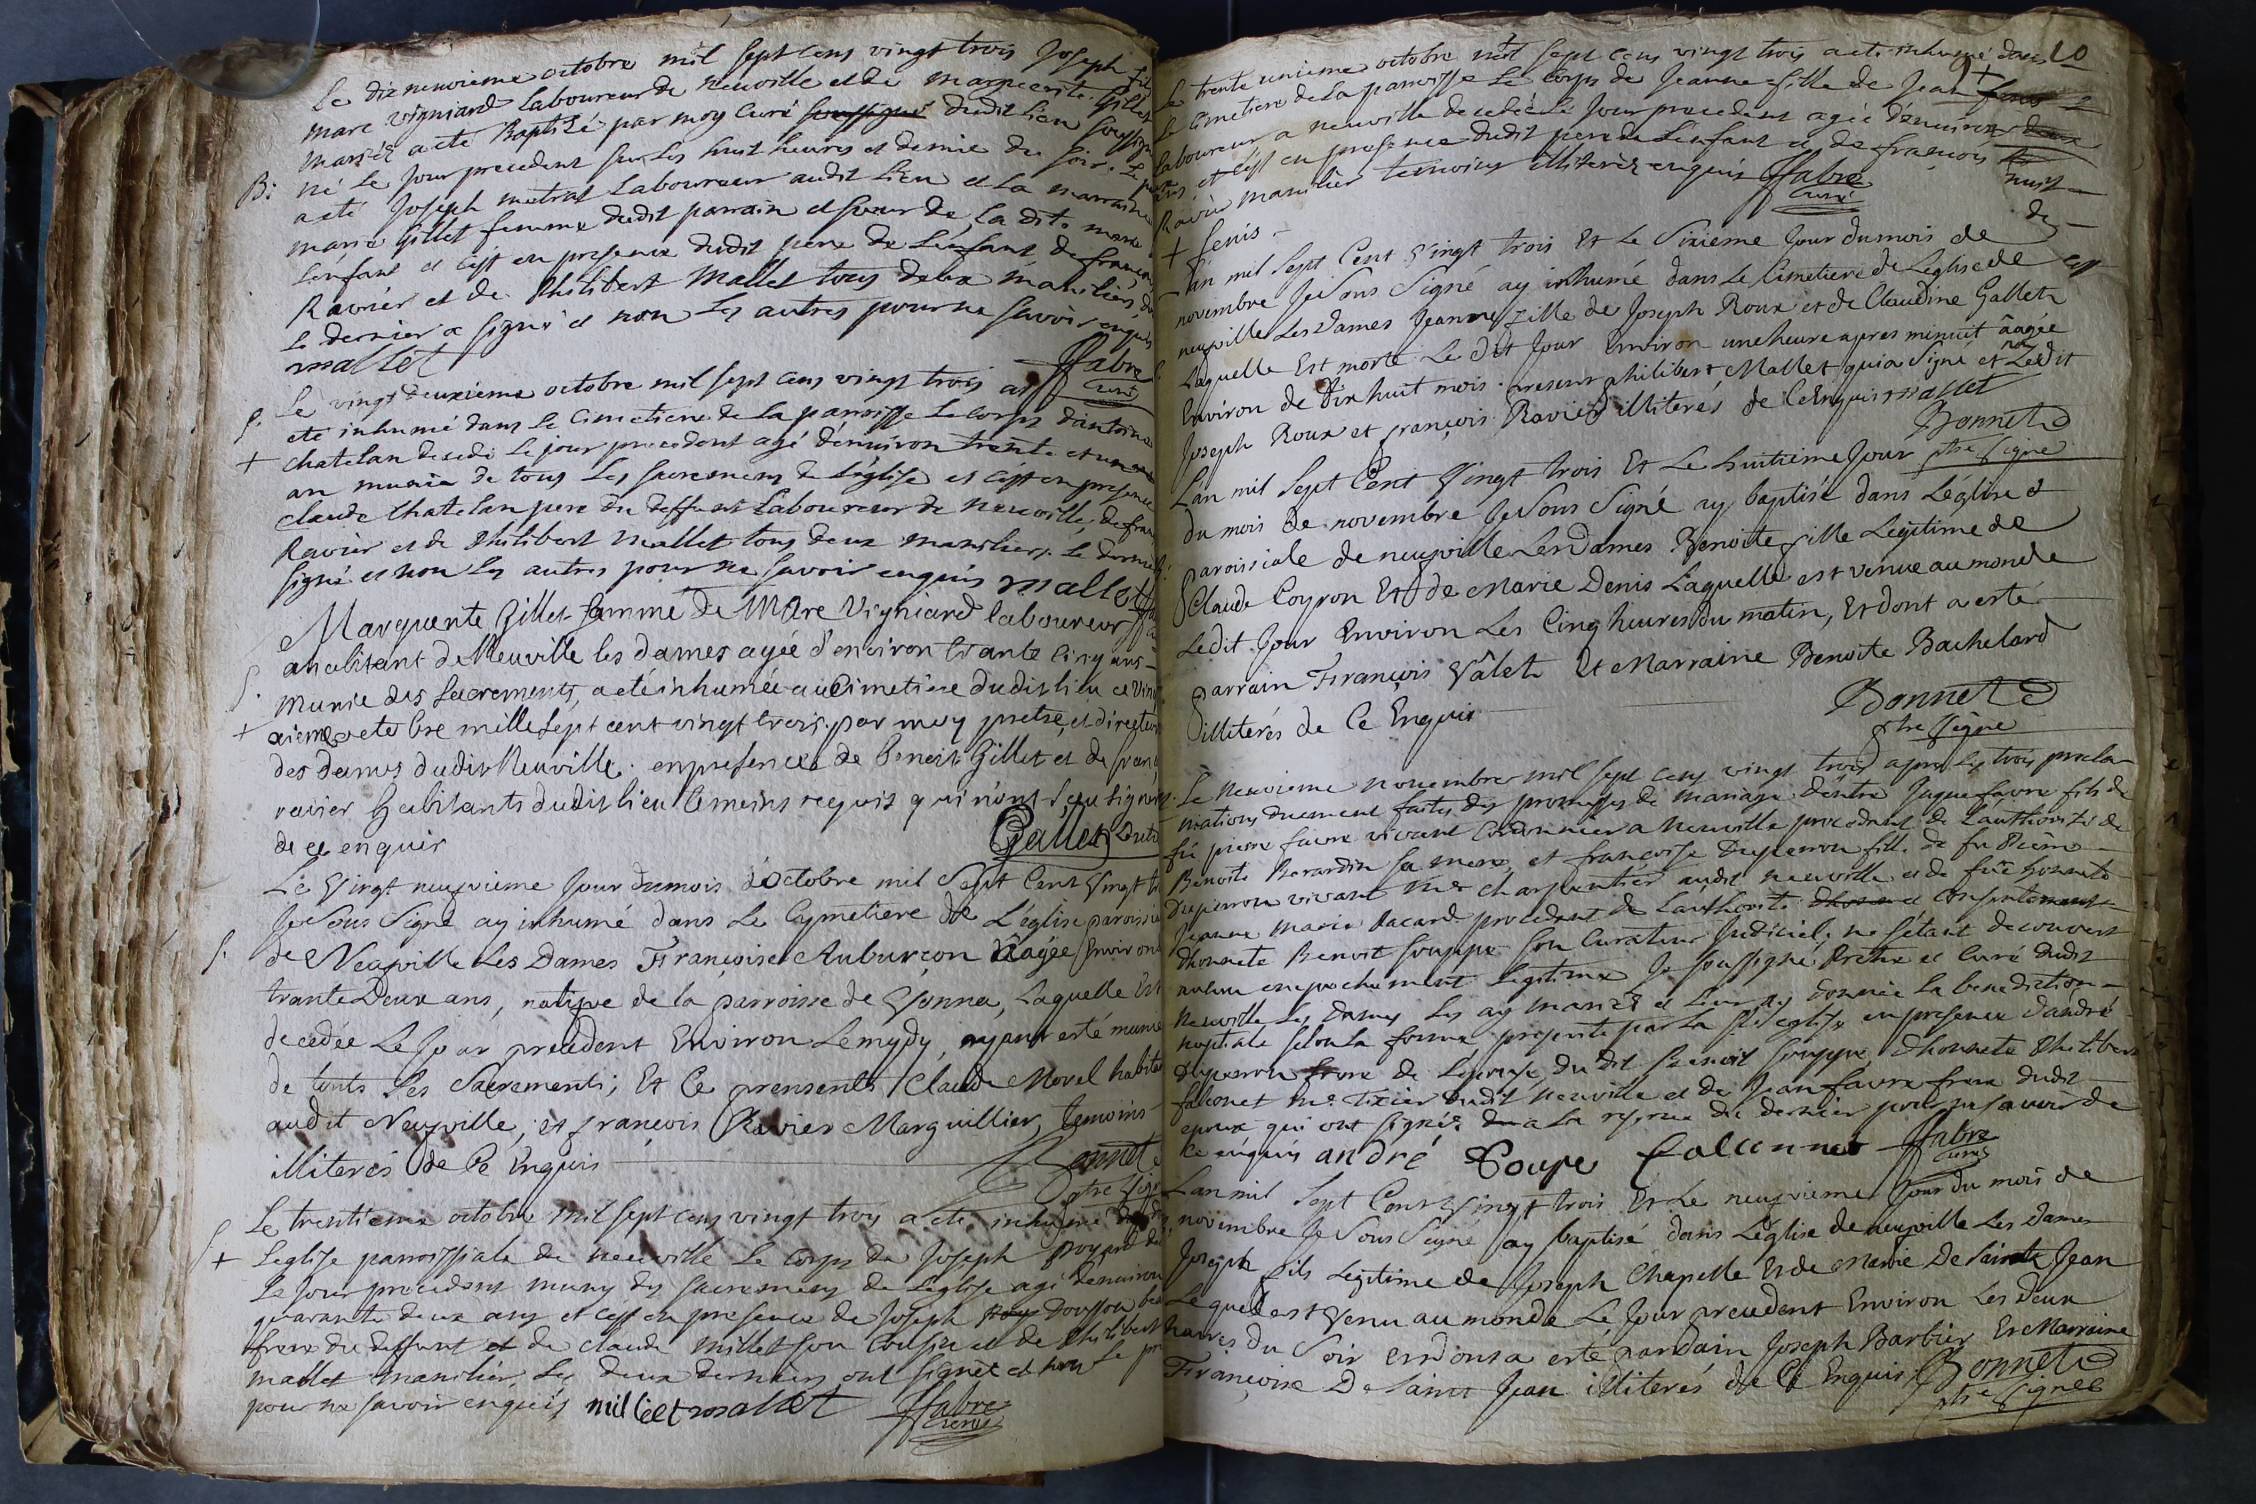 Le dix neuvieme octobre mil sept cens vingt trois Joseph fils
marc vigniard Laboureur de neuville et de marguerite Gillet
mariés a eté Baptisé par moy Curé soussigné dudit lieu soussigné
B: né le jour precedent sur les huit heures et demie du soir. Le
a eté Joseph mitrat Laboureur audit lieu et la marraine
marie Gillet femme dudit parrain et soeur de la dite mere
Lenfant et c'est en presence dudit pere de Lenfant, de francois
Ravier et de Philibert Mallet tous deux maniliers
le dernier a signé et non les autres pour ne savoir enquis
mallet ffabre
curé
Le vingt deuxieme octobre mil sept cens vingt trois a
S. eté inhumé dans le Cimetiere de la paroisse le corps d'antoine
+ chatelan decedé le jour precedent agé d'environ trente et un
an munie de tous les sacremens de L'église et c'est en presence
claude Chatelan pere du deffunt Laboureur de neuville, de fran
Ravier et de Philibert Mallet tous deux maniliers. le dernier
signé et non les autres pour ne savoir enquis mallet
Marguerite Gillet famme de Marc Vigniard laboureur
an abitant de Neuville les dames agée d'environ trante cinq ans
S. Munie des Sacrements, a eté inhumée au Cimetiere dudit lieu ce vin
+ xieme octobre mille sept cent vingt trois. par moy pretre, et directeur
des dames dudit Neuville. en presence de Benoit Gillet et de franc
ravier habitants dudit lieu temoins requis qui n'ont sçeu signer
de ce enquir Gallet
Le Vingt neufvieme Jour du mois d'octobre mil Sept Cent Vingt t
Je Sous Signé ay inhumé dans Le Cymetiere de L'église paroissia
S. de Neufville Les Dames Françoise Auburçon aâgée Environ
trante Deux ans, natifve de la parroisse de Vonna, Laquelle Est
decedée Le Jour precedent Environ Le mydy, ayant esté munie
de touts Les Sacrements; Et Ce prensents Claude Morel habita
audit Neufville, et françois Ravier Marguillier, temoins
illiterés de Ce Enquis Bonnet
ptre Signé
Le trentieme octobre mil sept cens vingt trois a eté inhumé dans
+ Leglise parroissiale de neuville le corps de Joseph
Le jour precedent muny des sacremens de L'eglise agé d'environ
quarante deux ans et c'est en presence de Joseph Douffou beau
frere du deffunt et de claude millet son Cousin et de Philibert
mallet manilier, les deux derniers ont signé et non le pr
pour ne savoir enquis millet mallet ffabre
curé
10
Le trente unieme octobre mil sept cens vingt trois a eté inhumé dans
le Cimetiere de la paroisse le corps de Jeanne fille de Jean +
Laboureur a neuville decedée le Jour precedent agée d'environ
ans et c'est en presence dudit pere de Lenfant et de francois
Ravier manilier temoins illiterés enquis ffabre
curé
+ Genis
Lan mil Sept Cent Vingt trois Et Le Sixieme Jour dumois de
novembre Je Sous Signé ay inhumé dans Le Cimetiere de Leglise de
neufville Les Dames Jeanne fille de Joseph Roux et de Claudine Gallet
Laquelle Est morte Le dit Jour Environ une heure apres minuit âagée
Environ de Dix huit mois. present philibert Mallet qui a Signé et non Ledit
Joseph Roux et françois Ravier illiterés de Ce Enquis mallet
Bonnet
ptre Signé
Lan mil Sept Cent Vingt trois Et Le huitieme Jour
du mois de novembre Je Sous Signé ay baptisé dans Léglise
Paroissiale de neufville Les Dames Benoite fille Legitime de
Claude Coyron Et de Marie Denis Laquelle est venue au monde
Ledit Jour Environ Les Cinq heures du matin, Et dont a esté
Parrain François Vâlet Et Marraine Benoite Bachelard
illiterés de Ce Enquis
Bonnet
ptre Signé
Le neuvieme novembre mil sept cens vingt trois apres les trois procla-
mations duement faites des promesses de mariage d'entre Jaque favre fils de
fû pierre favre vivant Cordonnier a neuville procedant de L'authorité de
Benoite Berardin sa mere, et françoise Duperron fille de fu Pierre
Duperron vivant Mre charpentier audit neuville et de fûe honnete
Jeanne Marie Bacard procedant de Lauthorité et Consentement
dhonnete Benoit Souppe son Curateur Judiciel, ne s'etant decouvert
aucun empechement Legitime Je soussigné Pretre et Curé dudit
Neuville Les dames les ay mariés et leur ay donnée la benediction
nuptiale selon la forme prescrite par la Ste eglise en presence d'andré
Duperron frere de L'epouse, du dit Benoit Souppe, dhonnete Philibert
falconet Me Tixier dudit neuville et de Jean favre frere dudit
epoux qui ont signés a la reserve du dernier pour ne savoir de
ce enquis andré Soupe falconnet ffabre
curé
Lan mil Sept Cent Vingt trois Et Le neufvieme Jour du mois de
novembre Je Sous Signé ay baptisé dans L'église de neufville Les Dames
Joseph fils Legitime de Joseph Chapelle Et de Marie De Sainte Jean
Lequel est Venu au monde Le Jour precedent Environ Les Deux
haures du Soir Et dont a esté pardain Joseph Barbier Et Marraine
Françoise De Saint Jean illiterés de Ce Enquis Bonnet
ptre Signé